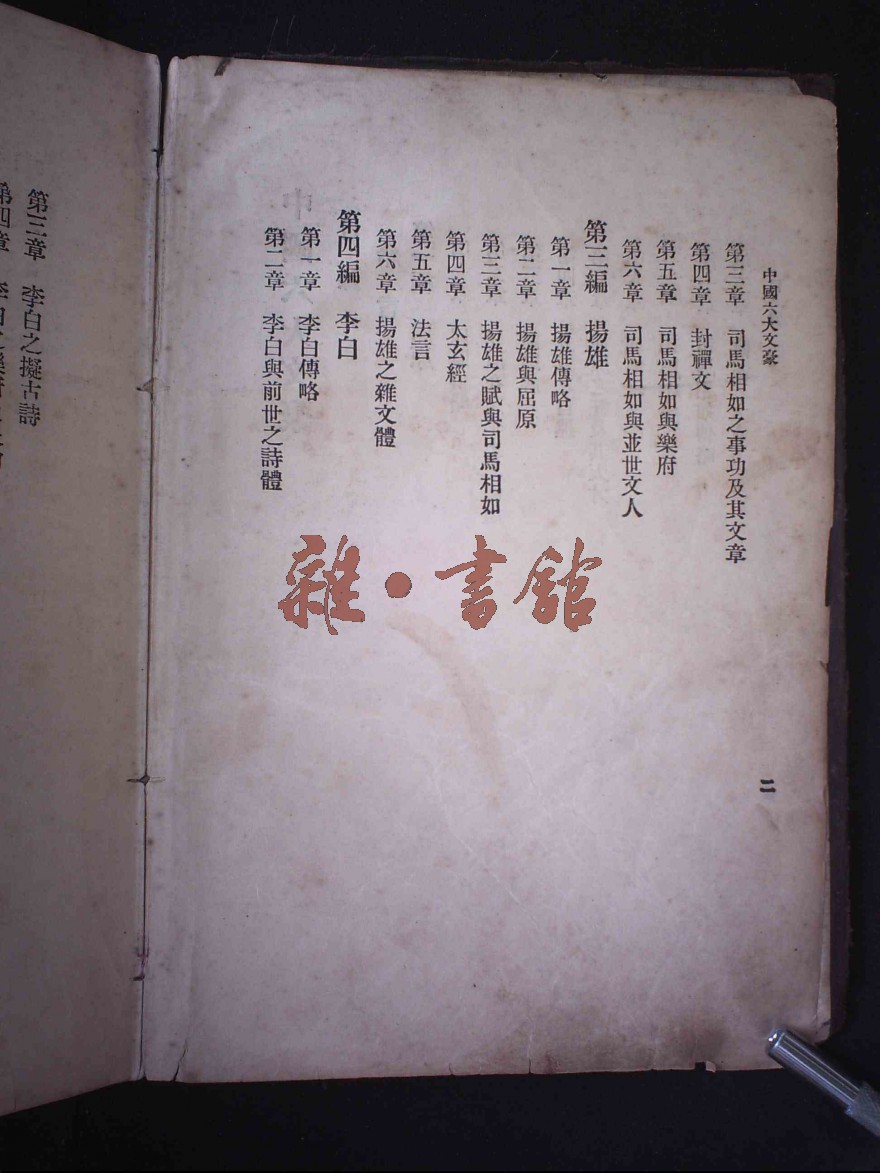 中國六大文豪
二
第三章　司馬相如之事功及其文章
第四章　封禪文
第五章　司馬相如與樂府
第六章　司馬相如與並世文人
第三編　揚雄
第一章　揚雄傳略
第二章　揚雄與屈原
第三章　揚雄之賦與司馬相如
第四章　太玄經
第五章　法言
第六章　揚雄之雜文體
第四編　李白
第一章　李白傳略
第二章　李白與前世之詩體
第三章　李白之擬古詩
第四章
雜・書館